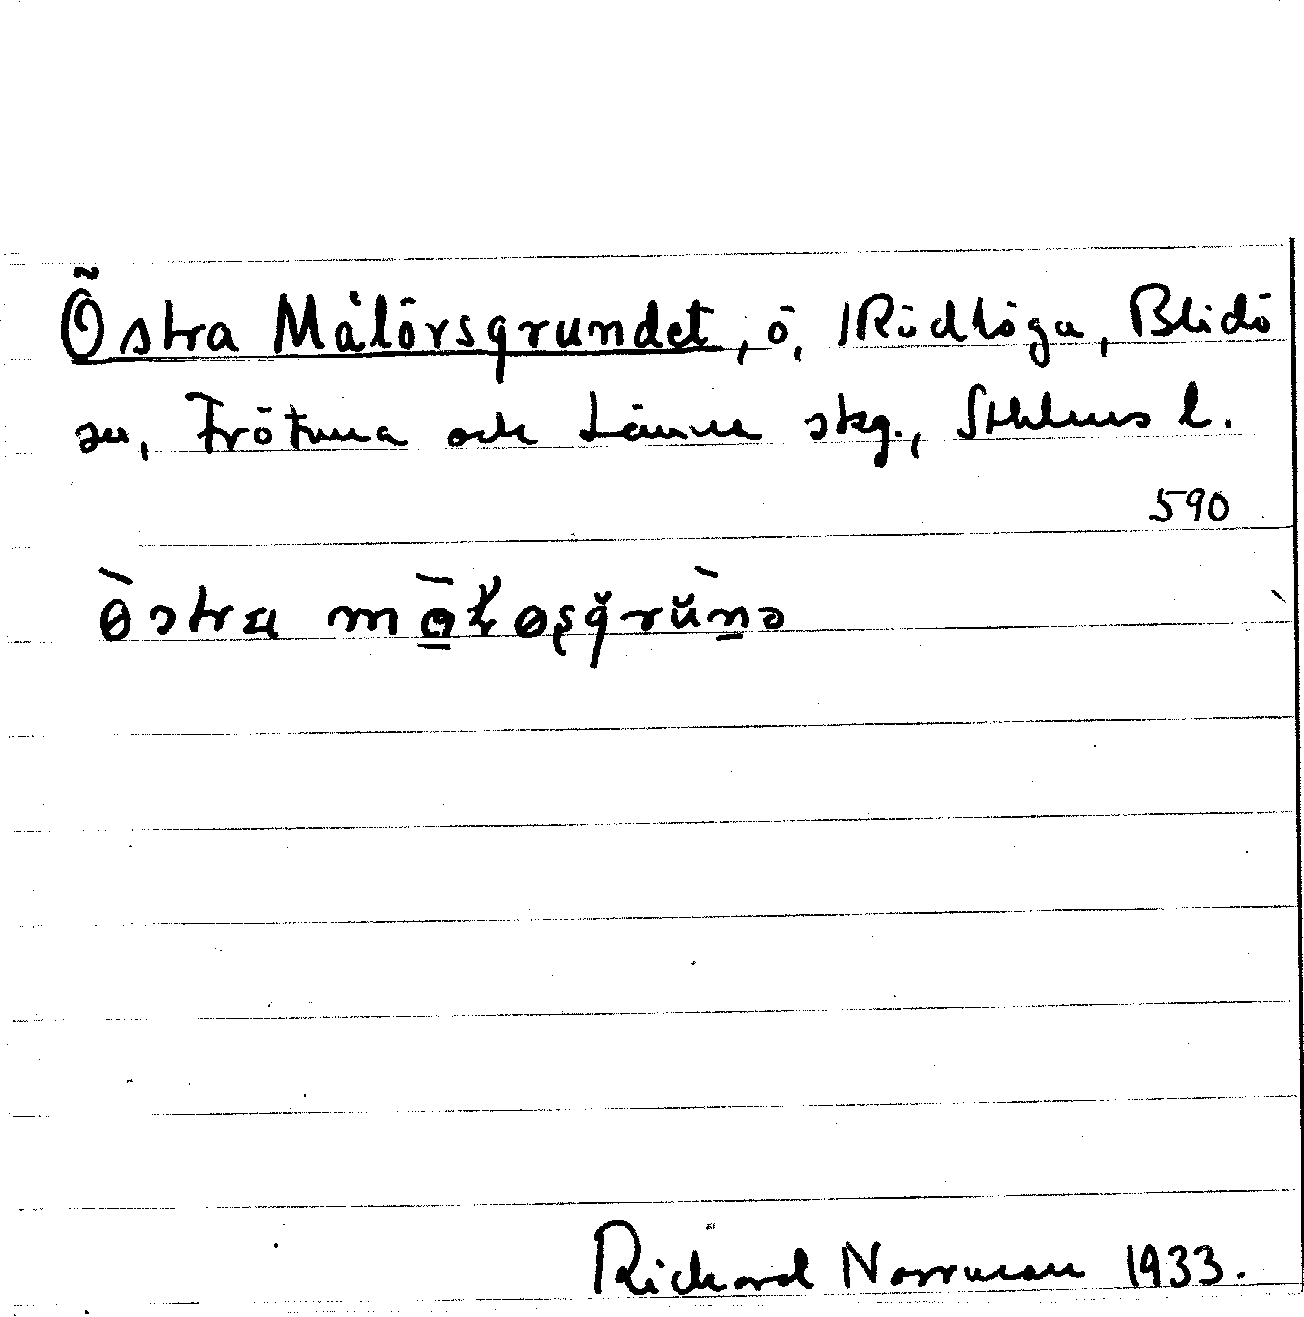 Östra Målörsgrundet, ö, Rödlöga, Blidö
sn, Frötuna och Länna skg., Sthlms l.
590
östra mɷ̀ɽøşgrŭ̀nə
Rickard Norrman 1933.